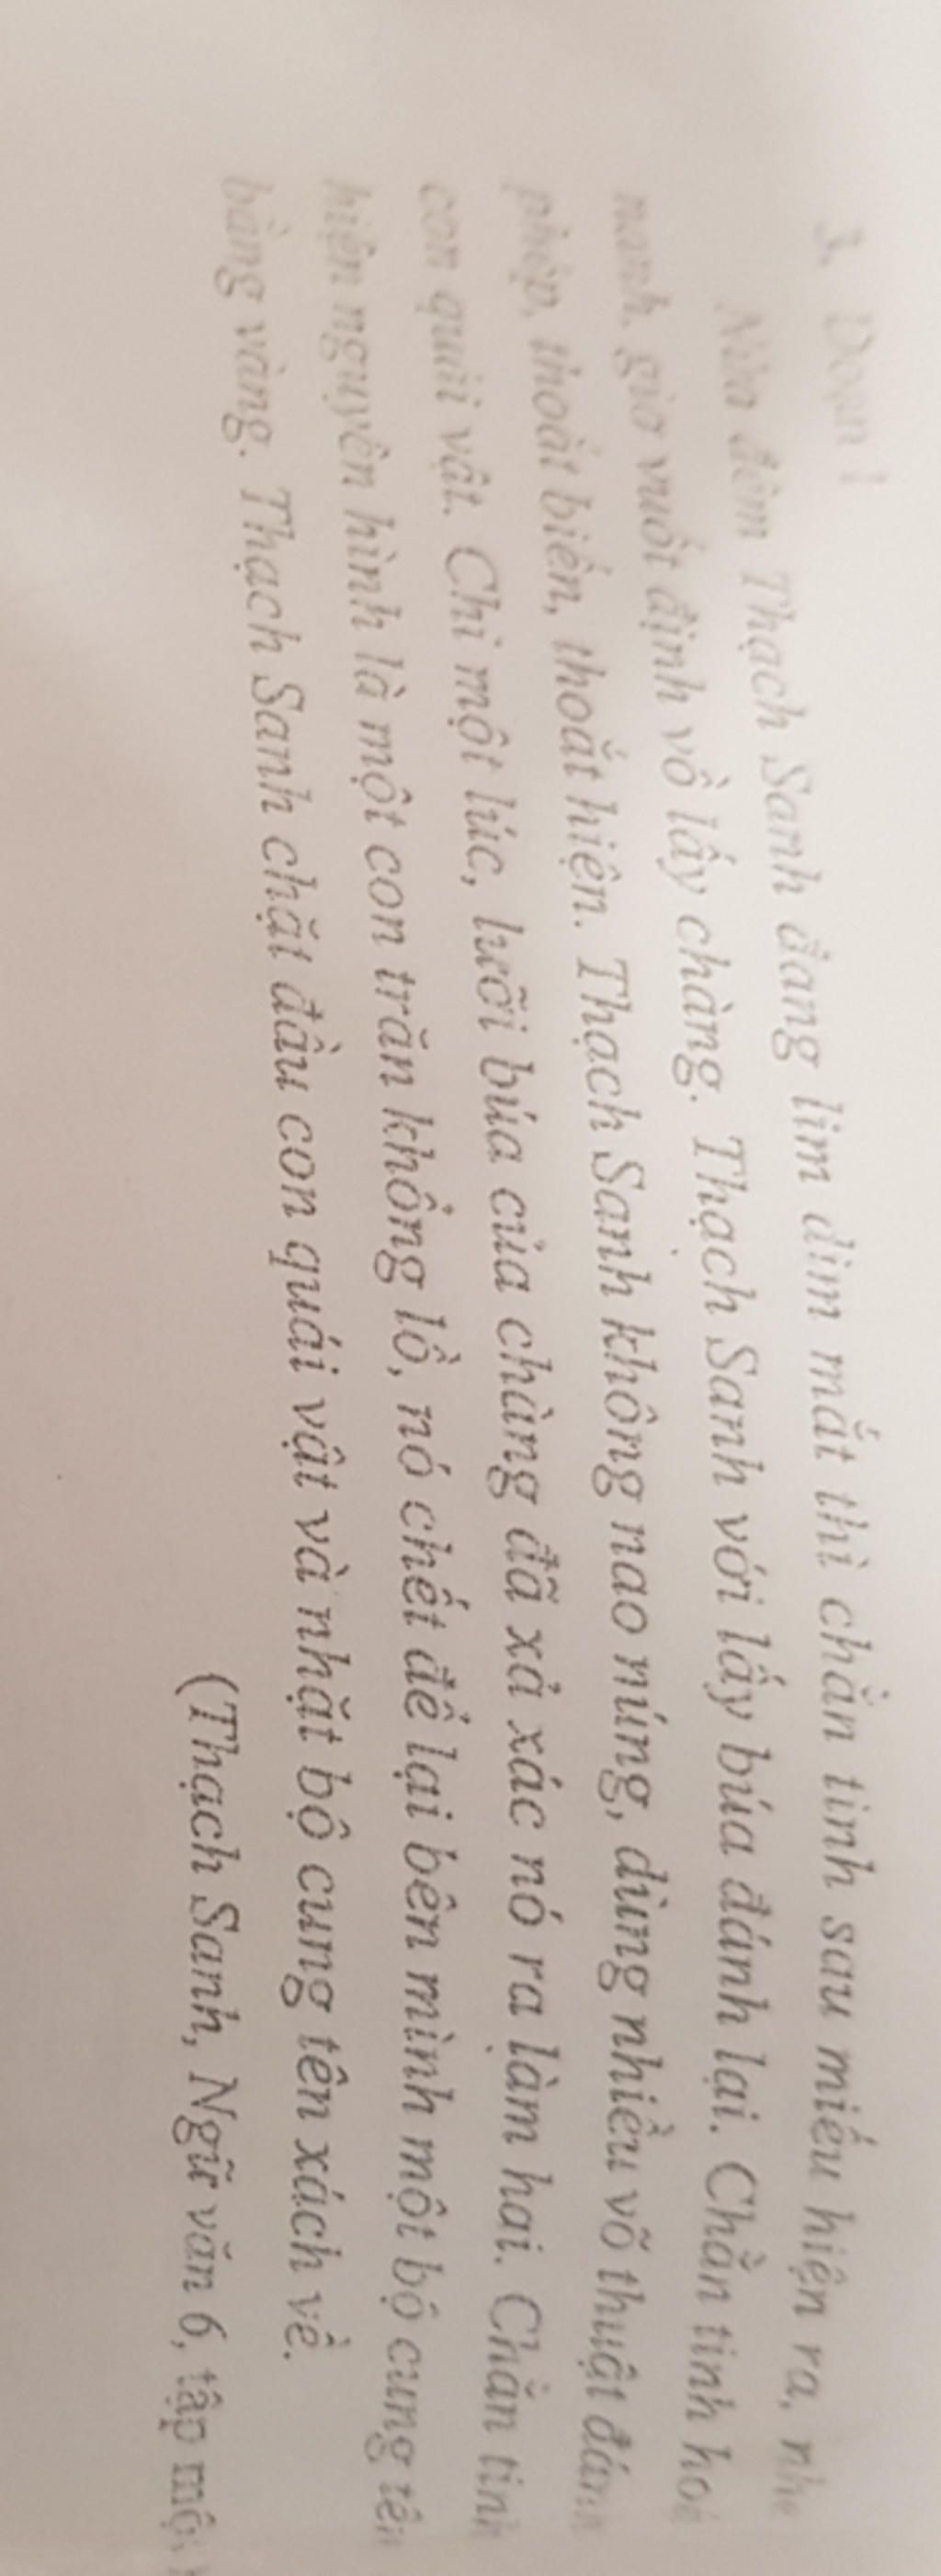 3. Đoạn 1
Nửa đêm Thạch Sanh đang lim dim mắt thì chằn tinh sau miếu hiện ra, nhe
nanh, giơ vuốt định vồ lấy chàng. Thạch Sanh với lấy búa đánh lại. Chằn tinh hoá
phép, thoắt biến, thoắt hiện. Thạch Sanh không nao núng, dùng nhiều võ thuật đánh
con quái vật. Chỉ một lúc, lưỡi búa của chàng đã xả xác nó ra làm hai. Chằn tinh
hiện nguyên hình là một con trăn khổng lồ, nó chết để lại bên mình một bộ cung tên
bằng vàng. Thạch Sanh chặt đầu con quái vật và nhặt bộ cung tên xách về.
(Thạch Sanh, Ngữ văn 6, tập